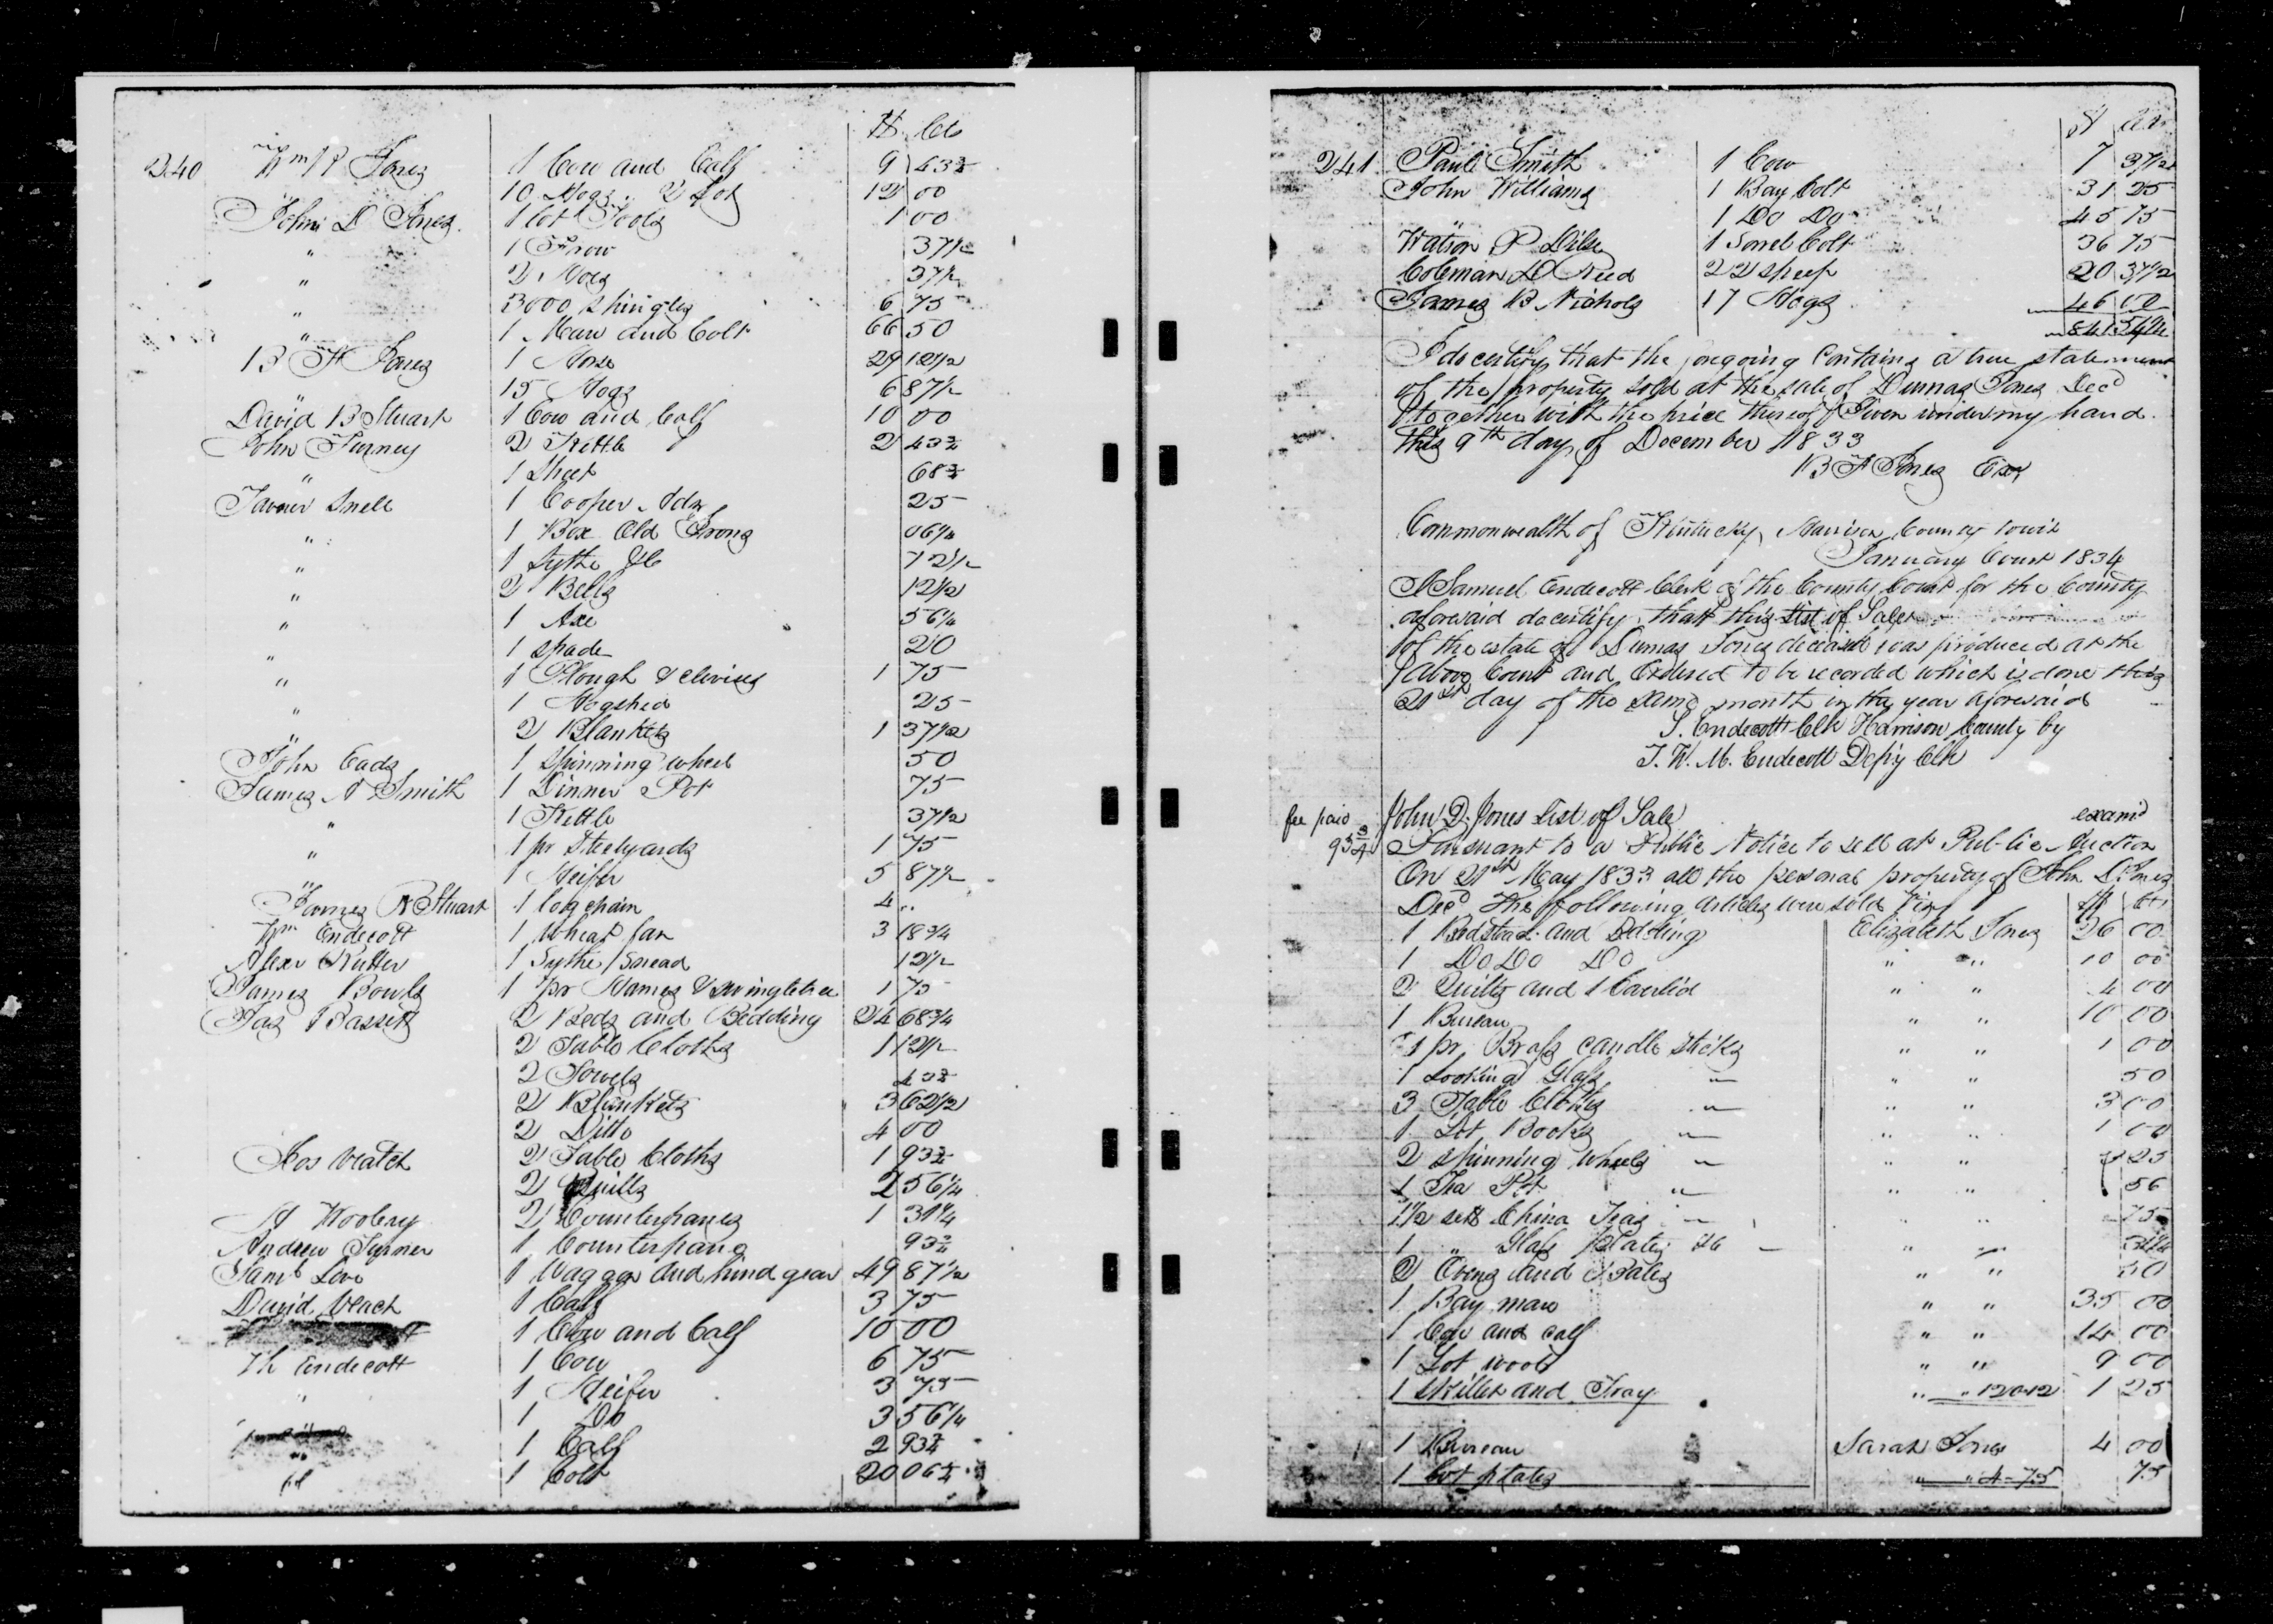 $ Cts
240 Wm R Jones 1 Cow and Calf 9 43¾
10 Hogs 2 Lot 12 00
John D Jones. 1 lot Tools 1 00
" 1 Frow 37½
" 2 Hoes 37½
" 3000 Shingles 6 75
" 1 Mare and Colt 66 50
B F Jones 1 Horse 29 12½
" 15 Hogs 6 87½
David B Stuart 1 Cow and Calf 10 00
John Turney 2 Kettle 2 43¾
" 1 Sheet 68¾
Tavner Snell 1 Cooper Adz 25
" 1 Box Old Irons 06¼
" 1 Sythe &c 12½
" 2 Bells 12½
" 1 Axe 56¼
" 1 spade 20
" 1 Plough & clevises 1 75
" 1 Hogshed 25
" 2 Blankets 1 37½
John Eads 1 Spinning wheel 50
James N Smith 1 Dinner Pot 75
" 1 Kettle 37½
" 1 pr Steelyards 1 75
" 1 Heifer 5 87½
James R Stuart 1 log chain 4 ..
Wm Endecott 1 Wheat fan 3 18¾
Alexr Rutter 1 Sythe / Snead 12½
James Bowls 1 pr Hames & swingletree 1 75
Jas Bassett 2 Beds and Bedding 24 68¾
2 Table Cloths 1 12½
2 Towels 43¾
2 Blankets 3 62½
2 Ditto 4 00
Jos Veatch 2 Table Cloths 1 93¾
2 Quilts 2 56¼
Woolery 2 Counterpanes 1 31¼
Andrew Turner 1 Counterpane 93¾
Saml Love 1 Waggon and hind gear 49 87½
David Veach 1 Calf 3 75
1 Cow and Calf 10 00
Th Endecott 1 Cow 6 75
" 1 Heifer 3 75
1 Do 3 56¼
" 1 Calf 2 93¾
1 Colt 20 06¼
$ Cts
241 Paul Smith 1 Cow 7 37½
John Williams 1 Bay Colt 31 25
" 1 Do Do 45 75
Watson P 1 Sorrel Colt 36 75
Coleman D Reed 22 sheep 20 37½
James B Nichols 17 Hogs 46 00
841
I do certify that the forgoing Contains a true statement
of the property sold at the sale of Dumas Jones Decd
together with the price thereof Given under my hand
this 9th day of December 1833
B F Jones Exor
Commonwealth of Kentucky Harrison County towit
January Court 1834
I Samuel Endecott Clerk of the County Court for the County
aforesaid do certify that this List of Sales
of the estate of Dumas Jones deceased was produced at the
above Court and Ordered to be recorded which is done this
21st day of the same month in the year aforesaid
S. Endecott Clk Harrison County by
J. W. M. Endecott Depy Clk
fee paid John D. Jones List of Sale examd
93¾ Pursuant to a Public Notice to sell at Public Auction
On 21st May 1833 all the personal property of John D Jones
Decd The following Articles were sold Viz $ Cts
1 Bedstead and Bedding Elizabeth Jones 26 00
1 Do Do Do " " 10 00
2 Quilts and 1 Coverlid " " 4 00
1 Bureau " " 10 00
1 pr Brass candle sticks " " 1 00
1 Looking Glass " " 50
3 Table Cloths " " 3 00
1 Lot Books " " 1 00
2 spinning wheels " " 25
1 Tea Pot " " 56
1½ setts China Teas " " 75
1 " Glass Plates &c " "
2 Ovens and " " 50
1 Bay mare " " 35 00
1 Cow and calf " " 14 00
1 Lot wool " " 9 00
1 Skillet and Tray " " 1 25
1 Bureau Sarah Jones 4 00
1 Lot plates " " 4-75 75